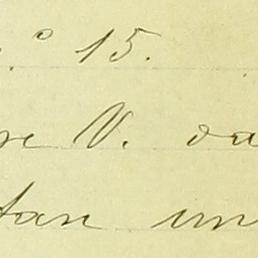 .º 15.
re V. da
tan un